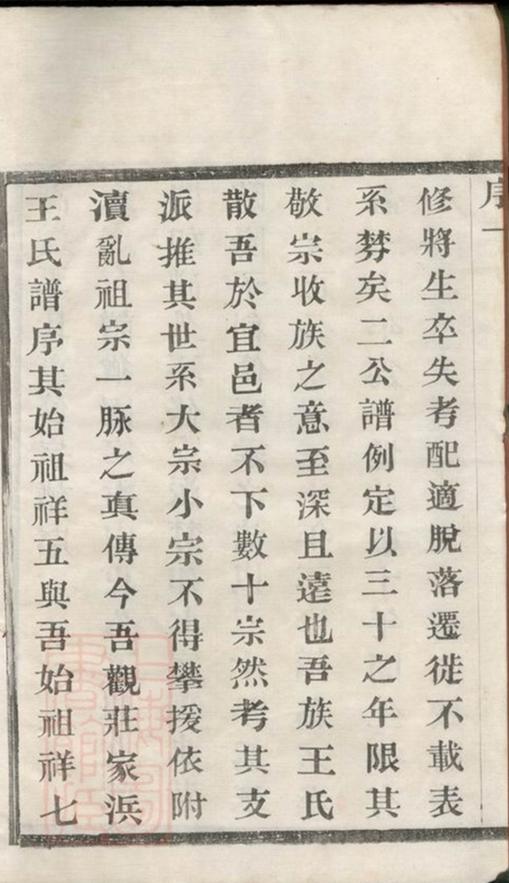 序一
修將生卒失考配適脫落遷徙不載表
系棼矣二公譜例定以三十之年限其
敬宗收族之意至深且遠也吾族王氏
散吾於宜邑者不下數十宗然考其支
派推其世系大宗小宗不得攀援依附
瀆亂祖宗一脉之真傳今吾觀莊家浜
王氏譜序其始祖祥五與吾始祖祥七